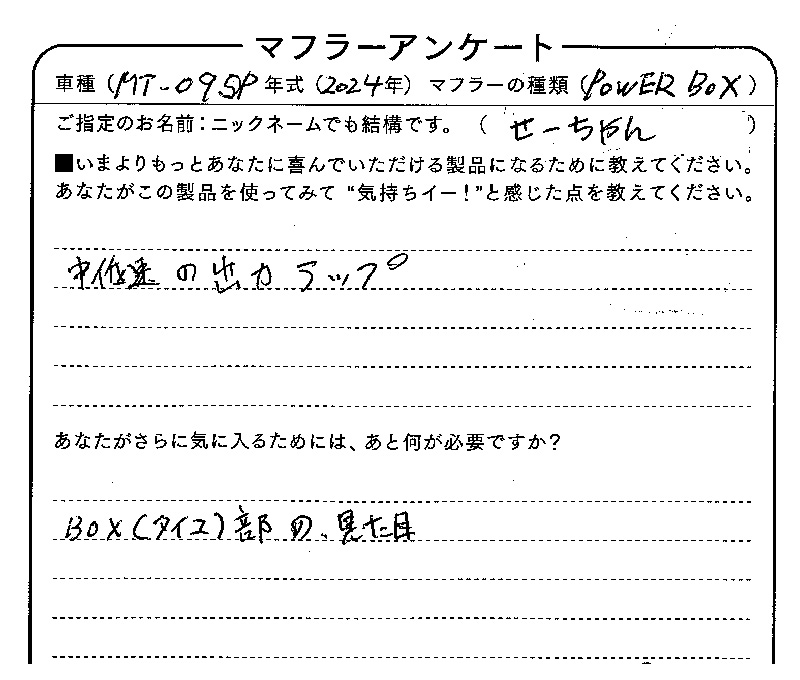 マフラーアンケート
車種（MT-09SP 年式（2024年） マフラーの種類（POWER BOX）
ご指定のお名前：ニックネームでも結構です。（ せーちゃん ）
■いまよりもっとあなたに喜んでいただける製品になるために教えてください。
あなたがこの製品を使ってみて“気持ちイー！”と感じた点を教えてください。
中低速の出力アップ
あなたがさらに気に入るためには、あと何が必要ですか？
BOX(タイコ)部の、見た目